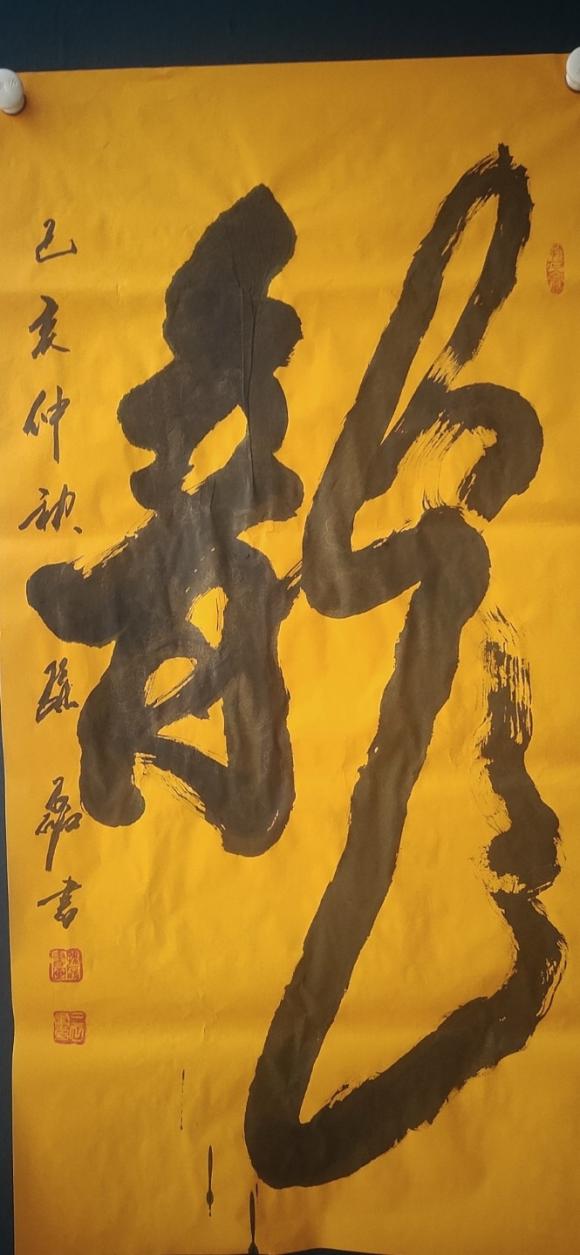 龍
己亥仲秋 孫磊書